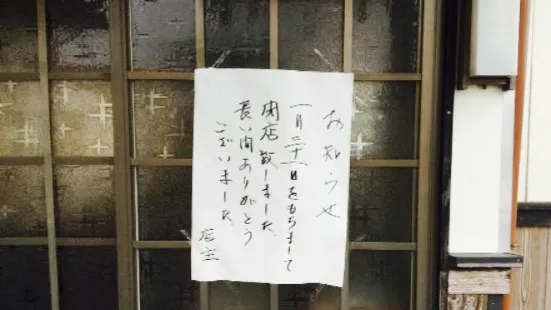 お知らせ
一月三十一日をもちまして
閉店致しました
長い間ありがとう
ございました
店主